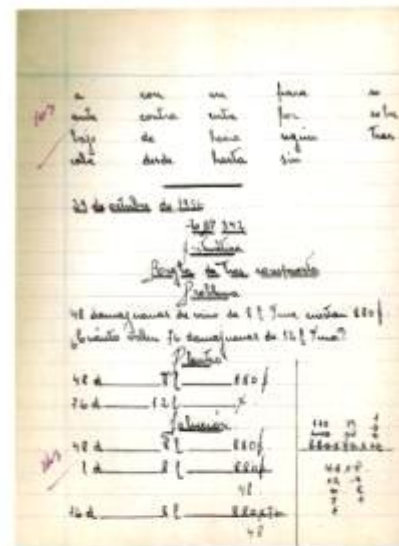 a con en para so
ante contra entre por sobre
bajo de hacia según tras
cabe desde hasta sin
29 de octubre de 1956
Aritmética
Regla de Tres compuesta
Problema
48 damajuanas de vino de 8 l una cuestan 880 p
¿Cuánto valen 76 damajuanas de 12 l una?
Planteo
48 d 8 l 880 p
76 d 12 l x
Solución
48 d 8 l 880 p
1 d 8 l 880 p
48
76 d 8 l 880x76
48